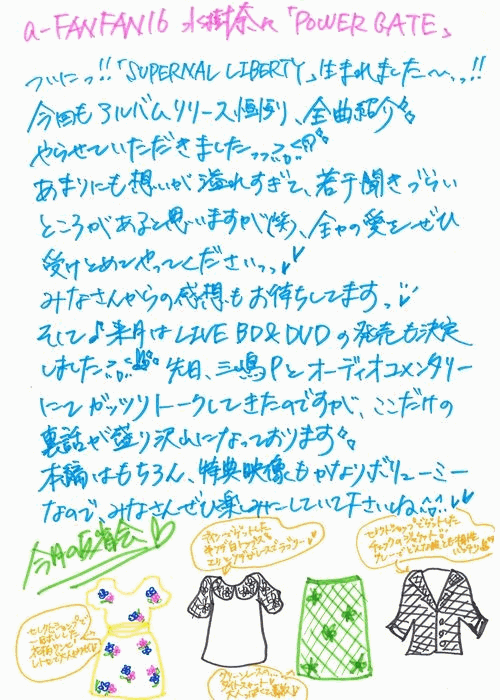 a-FANFAN16 水樹奈々「POWER GATE」
ついにっ!!「SUPERNAL LIBERTY」生まれました〜っ!!
今回もアルバムリリース恒例、全曲紹介
やらせていただきましたっっ
あまりにも想いが溢れすぎて、若干聞きづらい
ところがあると思いますが(笑)、全ての愛をぜひ
受けとめてやってくださいっっ♥♥
みなさんからの感想もお待ちしてますっ
そして♪来月はLIVE BD&DVDの発売も決定
しました 先日、三嶋Pとオーディオコメンタリー
にてガッツリトークしてきたのですが、ここだけの
裏話が盛り沢山になっております
本編はもちろん、特典映像もかなりボリューミー
なので、みなさんぜひ楽しみにしていて下さいね^^♥♥
今月の反省会♡
セレクトショップで
一目ぼれした